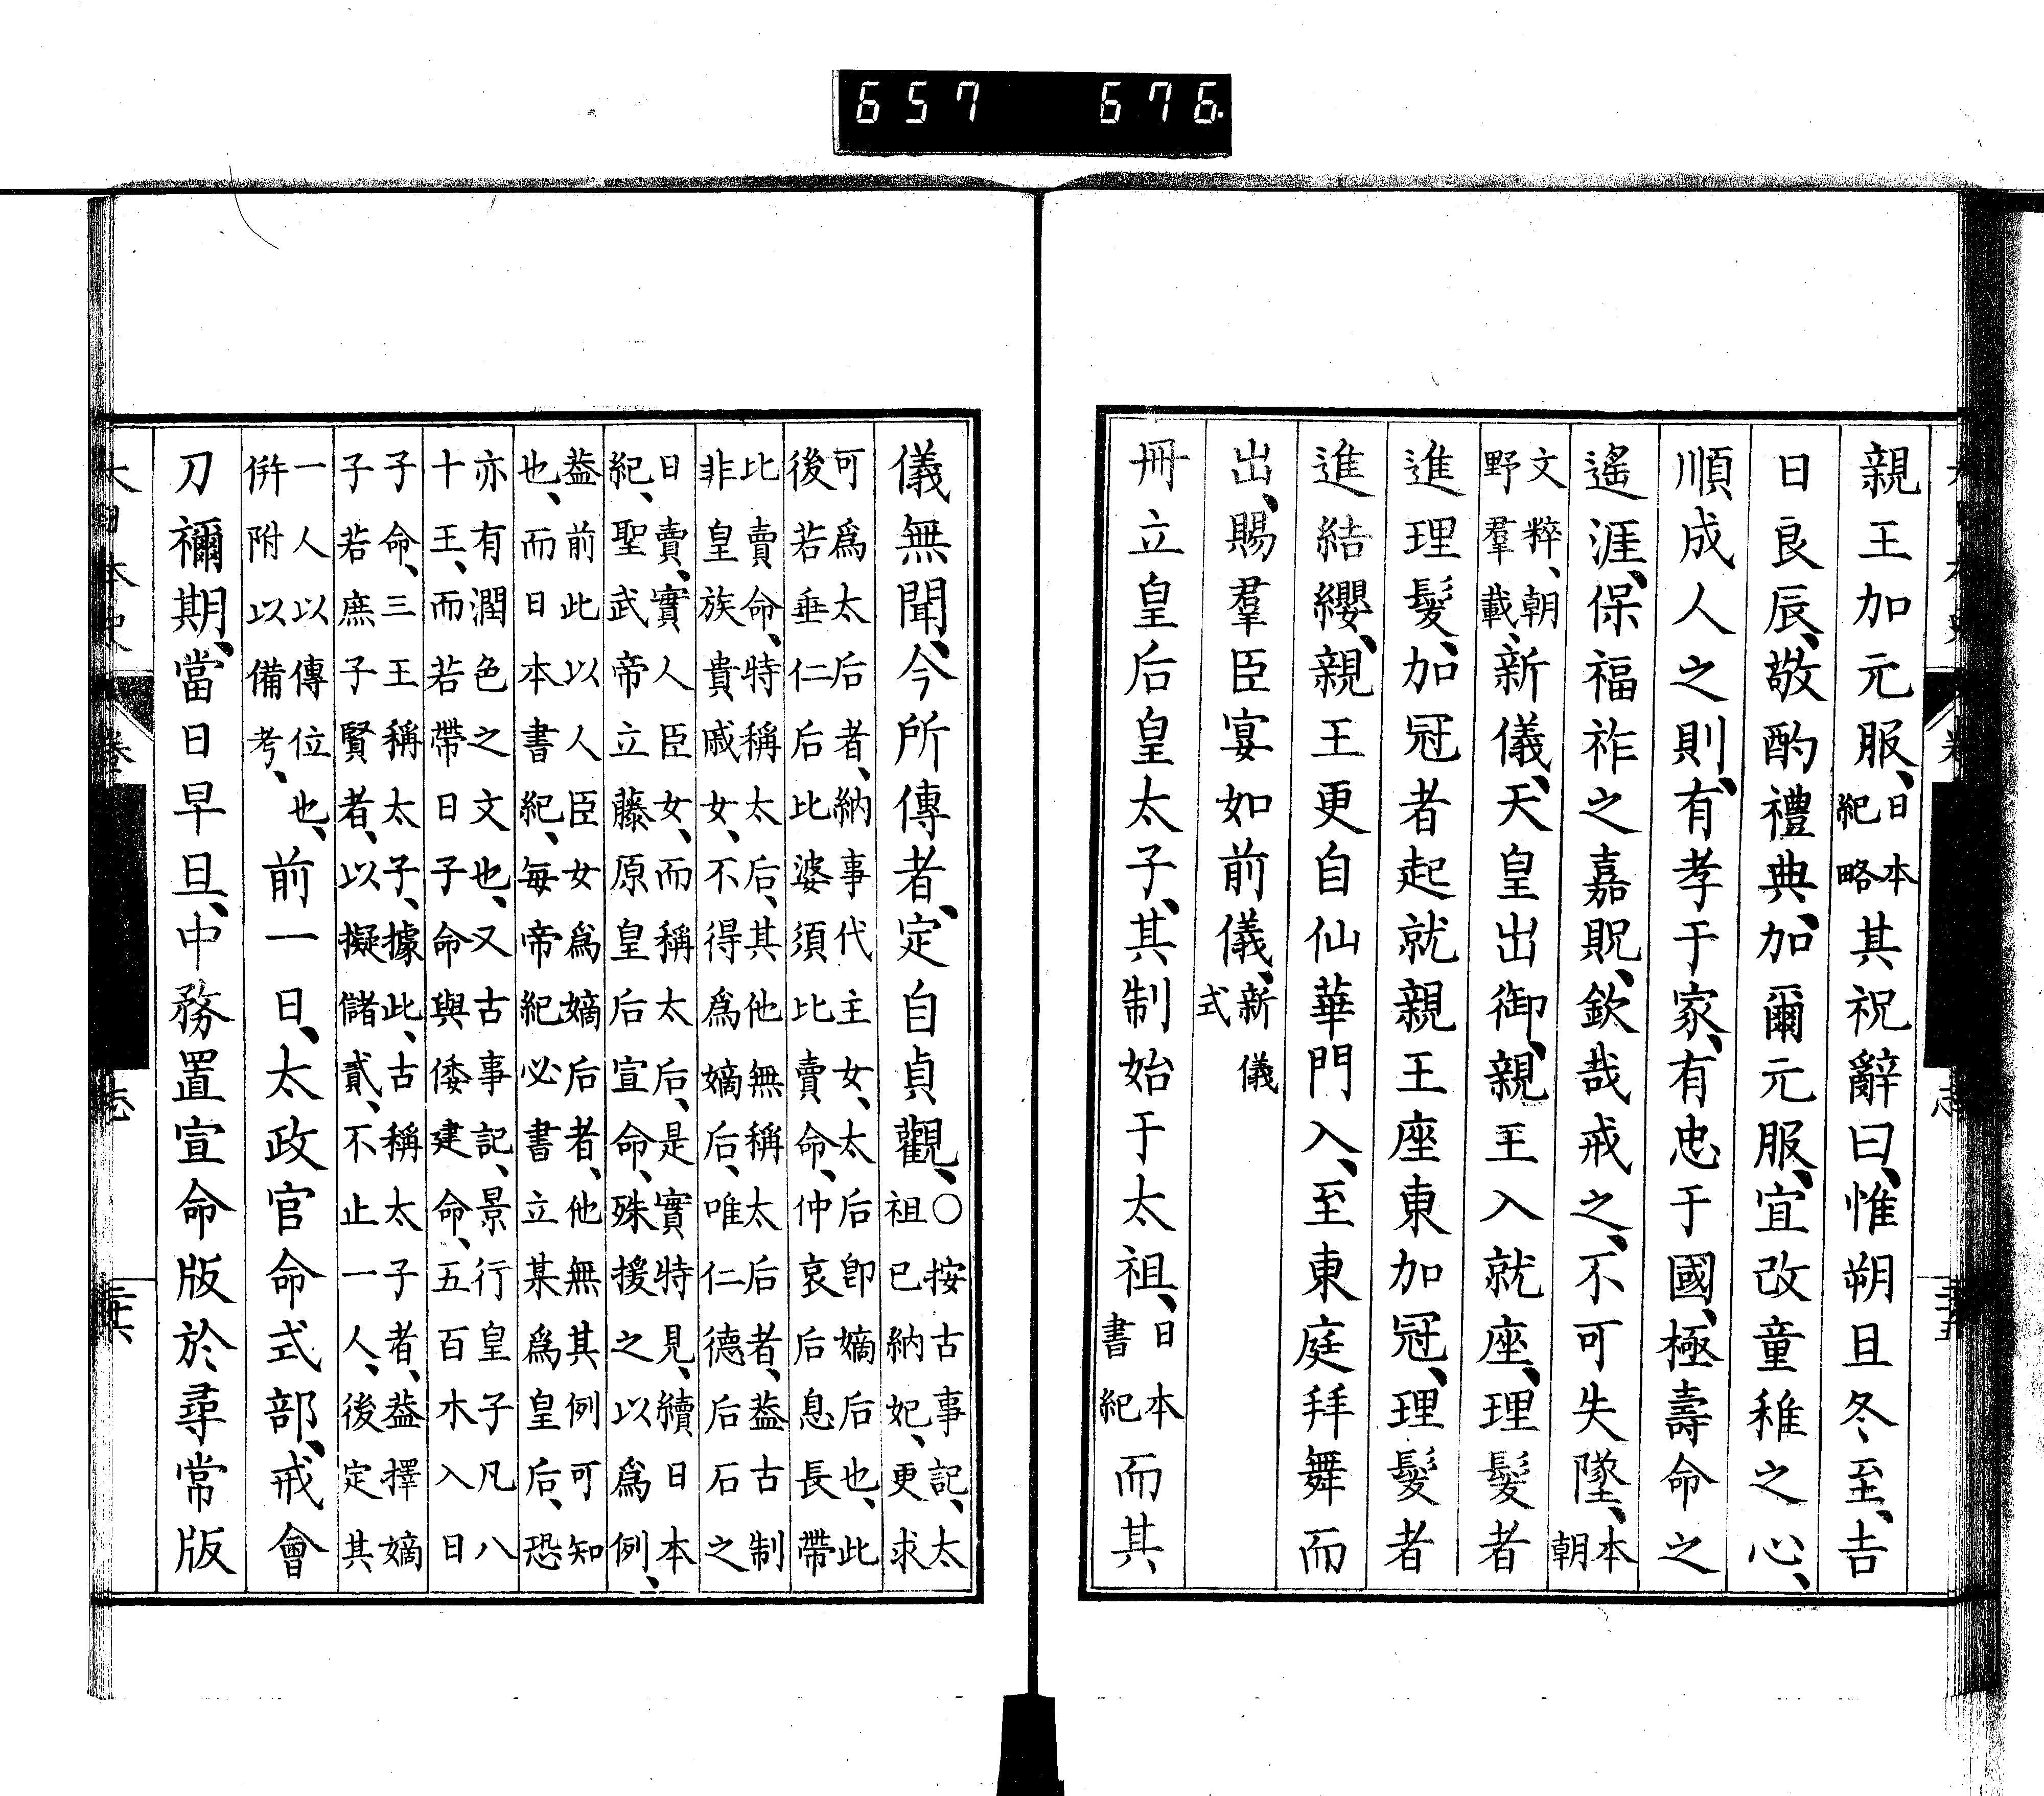 657 676
親王加元服、日本紀略其祝辭曰、惟朔旦冬至、吉
日良辰、敬酌禮典、加爾元服、宜改童稚之心、
順成人之則、有孝于家、有忠于國、極壽命之
遙涯、保福祚之嘉貺、欽哉戒之、不可失墜、本朝
文粹、朝野羣載、新儀、天皇出御、親王入就座、理髮者
進理髮、加冠者起就親王座東加冠、理髮者
進結纓、親王更自仙華門入、至東庭拜舞而
出、賜羣臣宴如前儀、新儀式
冊立皇后皇太子、其制始于太祖、日本書紀而其
儀無聞、今所傳者、定自貞觀、○按古事記、太祖已納妃、更求
可爲太后者、納事代主女、太后卽嫡后也、此後若垂仁后比婆須比賣命、仲哀后息長帶
比賣命、特稱太后、其他無稱太后者、葢古制非皇族貴戚女、不得爲嫡后、唯仁德后石之
日賣、實人臣女、而稱太后、是實特見、續日本紀、聖武帝立藤原皇后宣命、殊援之以爲例、
葢前此以人臣女爲嫡后者、他無其例可知也、而日本書紀、每帝紀必書立某爲皇后、恐
亦有潤色之文也、又古事記、景行皇子凡八十王、而若帶日子命與倭建命、五百木入日
子命、三王稱太子、據此、古稱太子者、葢擇嫡子若庶子賢者、以擬儲貳、不止一人、後定其
一人以傳位也、倂附以備考、前一日、太政官命式部、戒會
刀禰期、當日早旦、中務置宣命版於尋常版
大日本史 卷 志 三十六